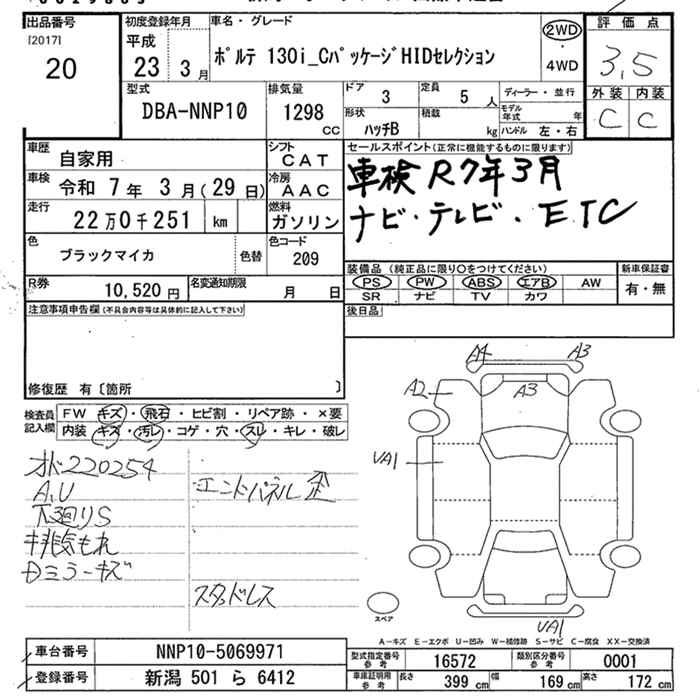 出品番号
[2017]
20
初度登録年月
平成
23 3月
車名・グレード
ポルテ 130i_CパッケージHIDセレクション
2WD
・
4WD
評価点
3,5
外装 内装
C C
型式
DBA-NNP10
排気量
1298
CC
ドア
3
定員
5 人
形状
ハッチB
積載
kg
ディーラー・並行
モデル年式 年
ハンドル 左・右
車歴
自家用
シフト
CAT
車検 令和 7年 3月(29日)
冷房
AAC
走行
22万0千251 km
燃料
ガソリン
色
ブラックマイカ
色替
色コード
209
R券
10,520 円
名変通知期限
月 日
セールスポイント(正常に機能するものに限ります)
車検 R7年3月
ナビ・テレビ・ETC
装備品 (純正品に限り○をつけてください)
新車保証書
PS PW ABS エアB AW
有・無
SR ナビ TV カワ
後日品
注意事項申告欄(不具合内容等は具体的に記入して下さい)
修復歴 有〔箇所 〕
検査員記入欄
FW キズ・飛石・ヒビ割・リペア跡・×要
内装 キズ・汚レ・コゲ・穴・スレ・キレ・破レ
オド220254
A,U
下廻りS
排気もれ
Dミラーキズ
エンドパネル歪
スタッドレス
A4 A3
A2 A3
UA1
UA1
スペア
A-キズ E-エクボ U-凹み W-補修跡 S-サビ C-腐食 XX-交換済
車台番号 NNP10-5069971
登録番号 新潟 501 ら 6412
型式指定番号参考 16572
類別区分番号参考 0001
車庫証明用参考
長さ 399 cm
幅 169 cm
高さ 172 cm